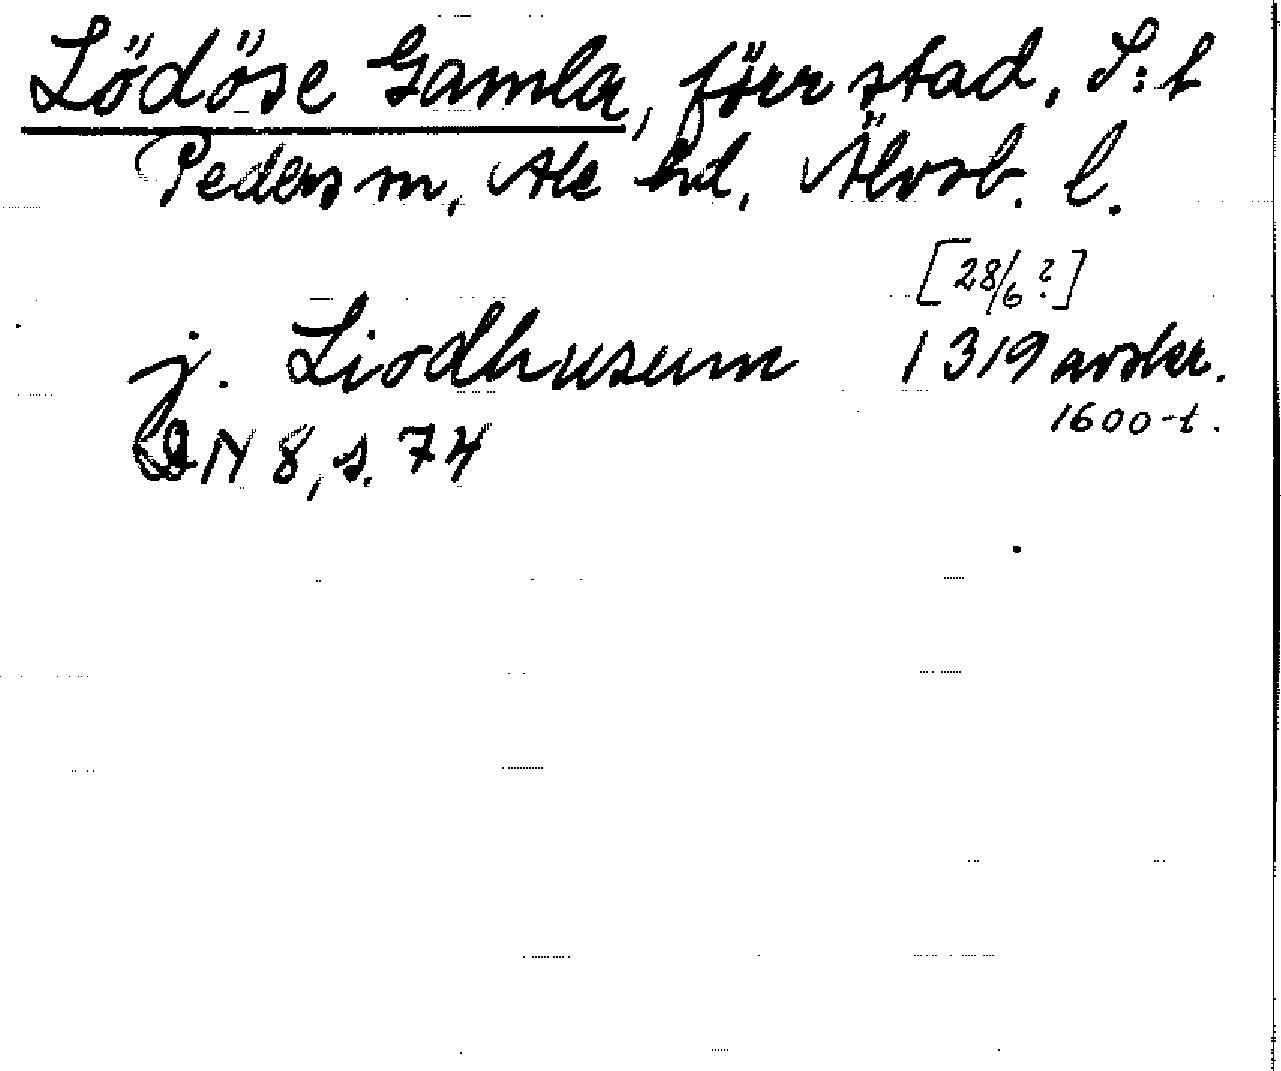 Lödöse Gamla, förr stad, S:t
Peders sn, Ale hd, Älvsb. l.
[28/6 ?]
j. Liodhusum 1319 avskr.
1600-t.
DN 8, s. 74